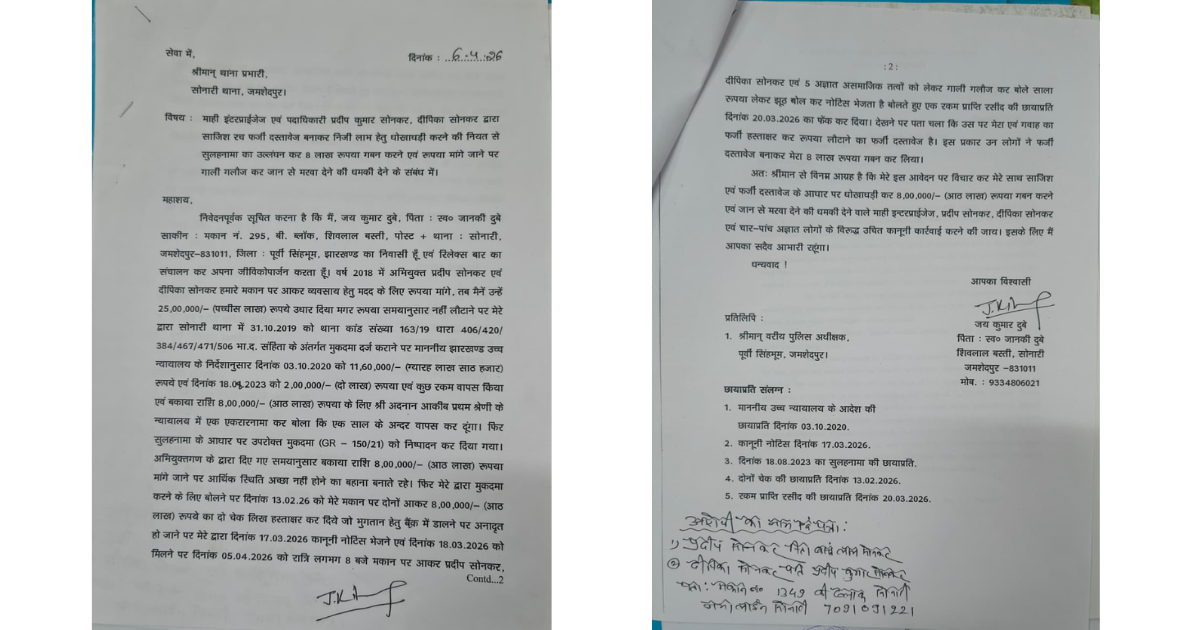 सेवा में,
दिनांक : 6.4.26
श्रीमान् थाना प्रभारी,
सोनारी थाना, जमशेदपुर।
विषय : माही इंटरप्राईजेज एवं पदाधिकारी प्रदीप कुमार सोनकर, दीपिका सोनकर द्वारा
साजिश रच फर्जी दस्तावेज बनाकर निजी लाभ हेतु धोखाधड़ी करने की नियत से
सुलहनामा का उल्लंघन कर 8 लाख रूपया गबन करने एवं रूपया मांगे जाने पर
गाली गलौज कर जान से मरवा देने की धमकी देने के संबंध में।
महाशय,
निवेदनपूर्वक सूचित करना है कि मैं, जय कुमार दुबे, पिता : स्व० जानकी दुबे
साकीन : मकान नं. 295, बी. ब्लॉक, शिवलाल बस्ती, पोस्ट + थाना : सोनारी,
जमशेदपुर-831011, जिला : पूर्वी सिंहभूम, झारखण्ड का निवासी हूँ एवं रिलेक्स बार का
संचालन कर अपना जीविकोपार्जन करता हूँ। वर्ष 2018 में अभियुक्त प्रदीप सोनकर एवं
दीपिका सोनकर हमारे मकान पर आकर व्यवसाय हेतु मदद के लिए रूपया मांगे, तब मैनें उन्हें
25,00,000/- (पच्चीस लाख) रूपये उधार दिया मगर रूपया समयानुसार नहीं लौटाने पर मेरे
द्वारा सोनारी थाना में 31.10.2019 को थाना कांड संख्या 163/19 धारा 406/420/
384/467/471/506 भा.द. संहिता के अंतर्गत मुकदमा दर्ज कराने पर माननीय झारखण्ड उच्च
न्यायालय के निर्देशानुसार दिनांक 03.10.2020 को 11,60,000/- (ग्यारह लाख साठ हजार)
रूपये एवं दिनांक 18.08.2023 को 2,00,000/- (दो लाख) रूपया एवं कुछ रकम वापस किया
एवं बकाया राशि 8,00,000/- (आठ लाख) रूपया के लिए श्री अदनान आकीब प्रथम श्रेणी के
न्यायालय में एक एकरारनामा कर बोला कि एक साल के अन्दर वापस कर दूंगा। फिर
सुलहनामा के आधार पर उपरोक्त मुकदमा (GR – 150/21) को निष्पादन कर दिया गया।
अभियुक्तगण के द्वारा दिए गए समयानुसार बकाया राशि 8,00,000/- (आठ लाख) रूपया
मांगे जाने पर आर्थिक स्थिति अच्छा नहीं होने का बहाना बनाते रहे। फिर मेरे द्वारा मुकदमा
करने के लिए बोलने पर दिनांक 13.02.26 को मेरे मकान पर दोनों आकर 8,00,000/- (आठ
लाख) रूपये का दो चेक लिख हस्ताक्षर कर दिये जो भुगतान हेतु बैंक में डालने पर अनादृत
हो जाने पर मेरे द्वारा दिनांक 17.03.2026 कानूनी नोटिस भेजने एवं दिनांक 18.03.2026 को
मिलने पर दिनांक 05.04.2026 को रात्रि लगभग 8 बजे मकान पर आकर प्रदीप सोनकर,
Contd...2
:2:
दीपिका सोनकर एवं 5 अज्ञात असमाजिक तत्वों को लेकर गाली गलौज कर बोले साला
रूपया लेकर झूठ बोल कर नोटिस भेजता है बोलते हुए एक रकम प्राप्ति रसीद की छायाप्रति
दिनांक 20.03.2026 का फेंक कर दिया। देखने पर पता चला कि उस पर मेरा एवं गवाह का
फर्जी हस्ताक्षर कर रूपया लौटाने का फर्जी दस्तावेज है। इस प्रकार उन लोगों ने फर्जी
दस्तावेज बनाकर मेरा 8 लाख रूपया गबन कर लिया।
अतः श्रीमान से विनम्र आग्रह है कि मेरे इस आवेदन पर विचार कर मेरे साथ साजिश
एवं फर्जी दस्तावेज के आधार पर धोखाधड़ी कर 8,00,000/- (आठ लाख) रूपया गबन करने
एवं जान से मरवा देने की धमकी देने वाले माही इन्टरप्राईजेज, प्रदीप सोनकर, दीपिका सोनकर
एवं चार-पांच अज्ञात लोगों के विरूद्ध उचित कानूनी कार्रवाई करने की जाय। इसके लिए मैं
आपका सदैव आभारी रहूंगा।
धन्यवाद !
आपका विश्वासी
जय कुमार दुबे
पिता : स्व० जानकी दुबे
शिवलाल बस्ती, सोनारी
जमशेदपुर -831011
मोब. : 9334806021
प्रतिलिपि :
1. श्रीमान् वरीय पुलिस अधीक्षक,
पूर्वी सिंहभूम, जमशेदपुर।
छायाप्रति संलग्न :
1. माननीय उच्च न्यायालय के आदेश की
छायाप्रति दिनांक 03.10.2020.
2. कानूनी नोटिस दिनांक 17.03.2026.
3. दिनांक 18.08.2023 का सुलहनामा की छायाप्रति.
4. दोनों चेक की छायाप्रति दिनांक 13.02.2026.
5. रकम प्राप्ति रसीद की छायाप्रति दिनांक 20.03.2026.
आरोपी का नाम एवं पता :
1) प्रदीप सोनकर पिता सोनकर
2) दीपिका सोनकर पति प्रदीप कुमार सोनकर
पता : मकान न० 1349 बी ब्लाक सोनारी
सोनारी 7091091221